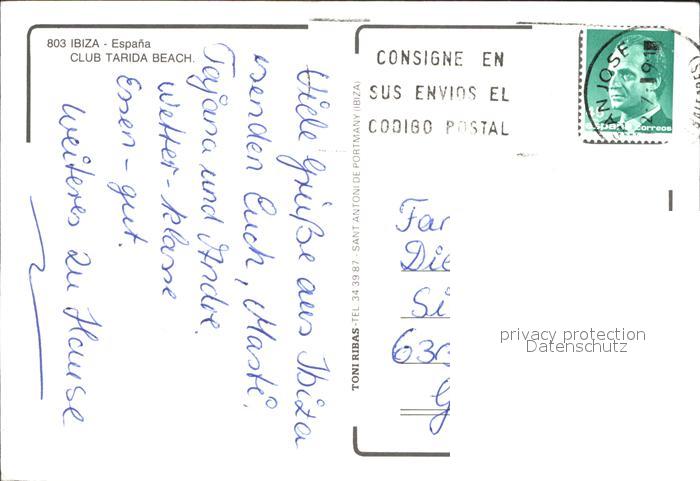 803 IBIZA - España
CLUB TARIDA BEACH.
Viele Grüße aus Ibiza
senden Euch, Masti,
Tajana und André.
Wetter - klasse
Essen - gut.
Weiteres zu Hause
TONI RIBAS - TEL. 34 39 87 - SANT ANTONI DE PORTMANY (IBIZA)
CONSIGNE EN
SUS ENVIOS EL
CODIGO POSTAL
SAN JOSE
correos
Far
Die
Si
630
G
privacy protection
Datenschutz